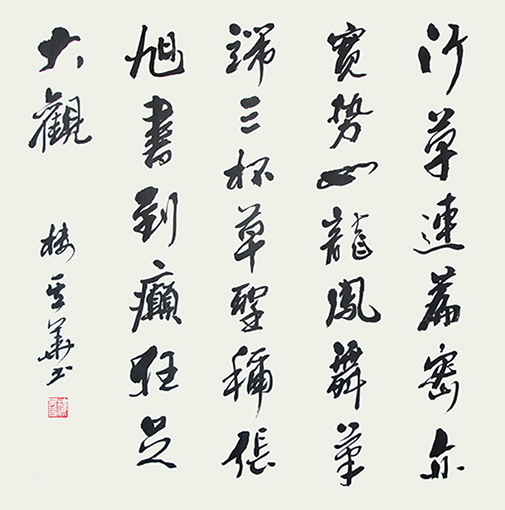 行草連篇密亦
寬勢如龍鳳舞筆
端三杯草聖稱張
旭書到癲狂足
大觀
樓 華書